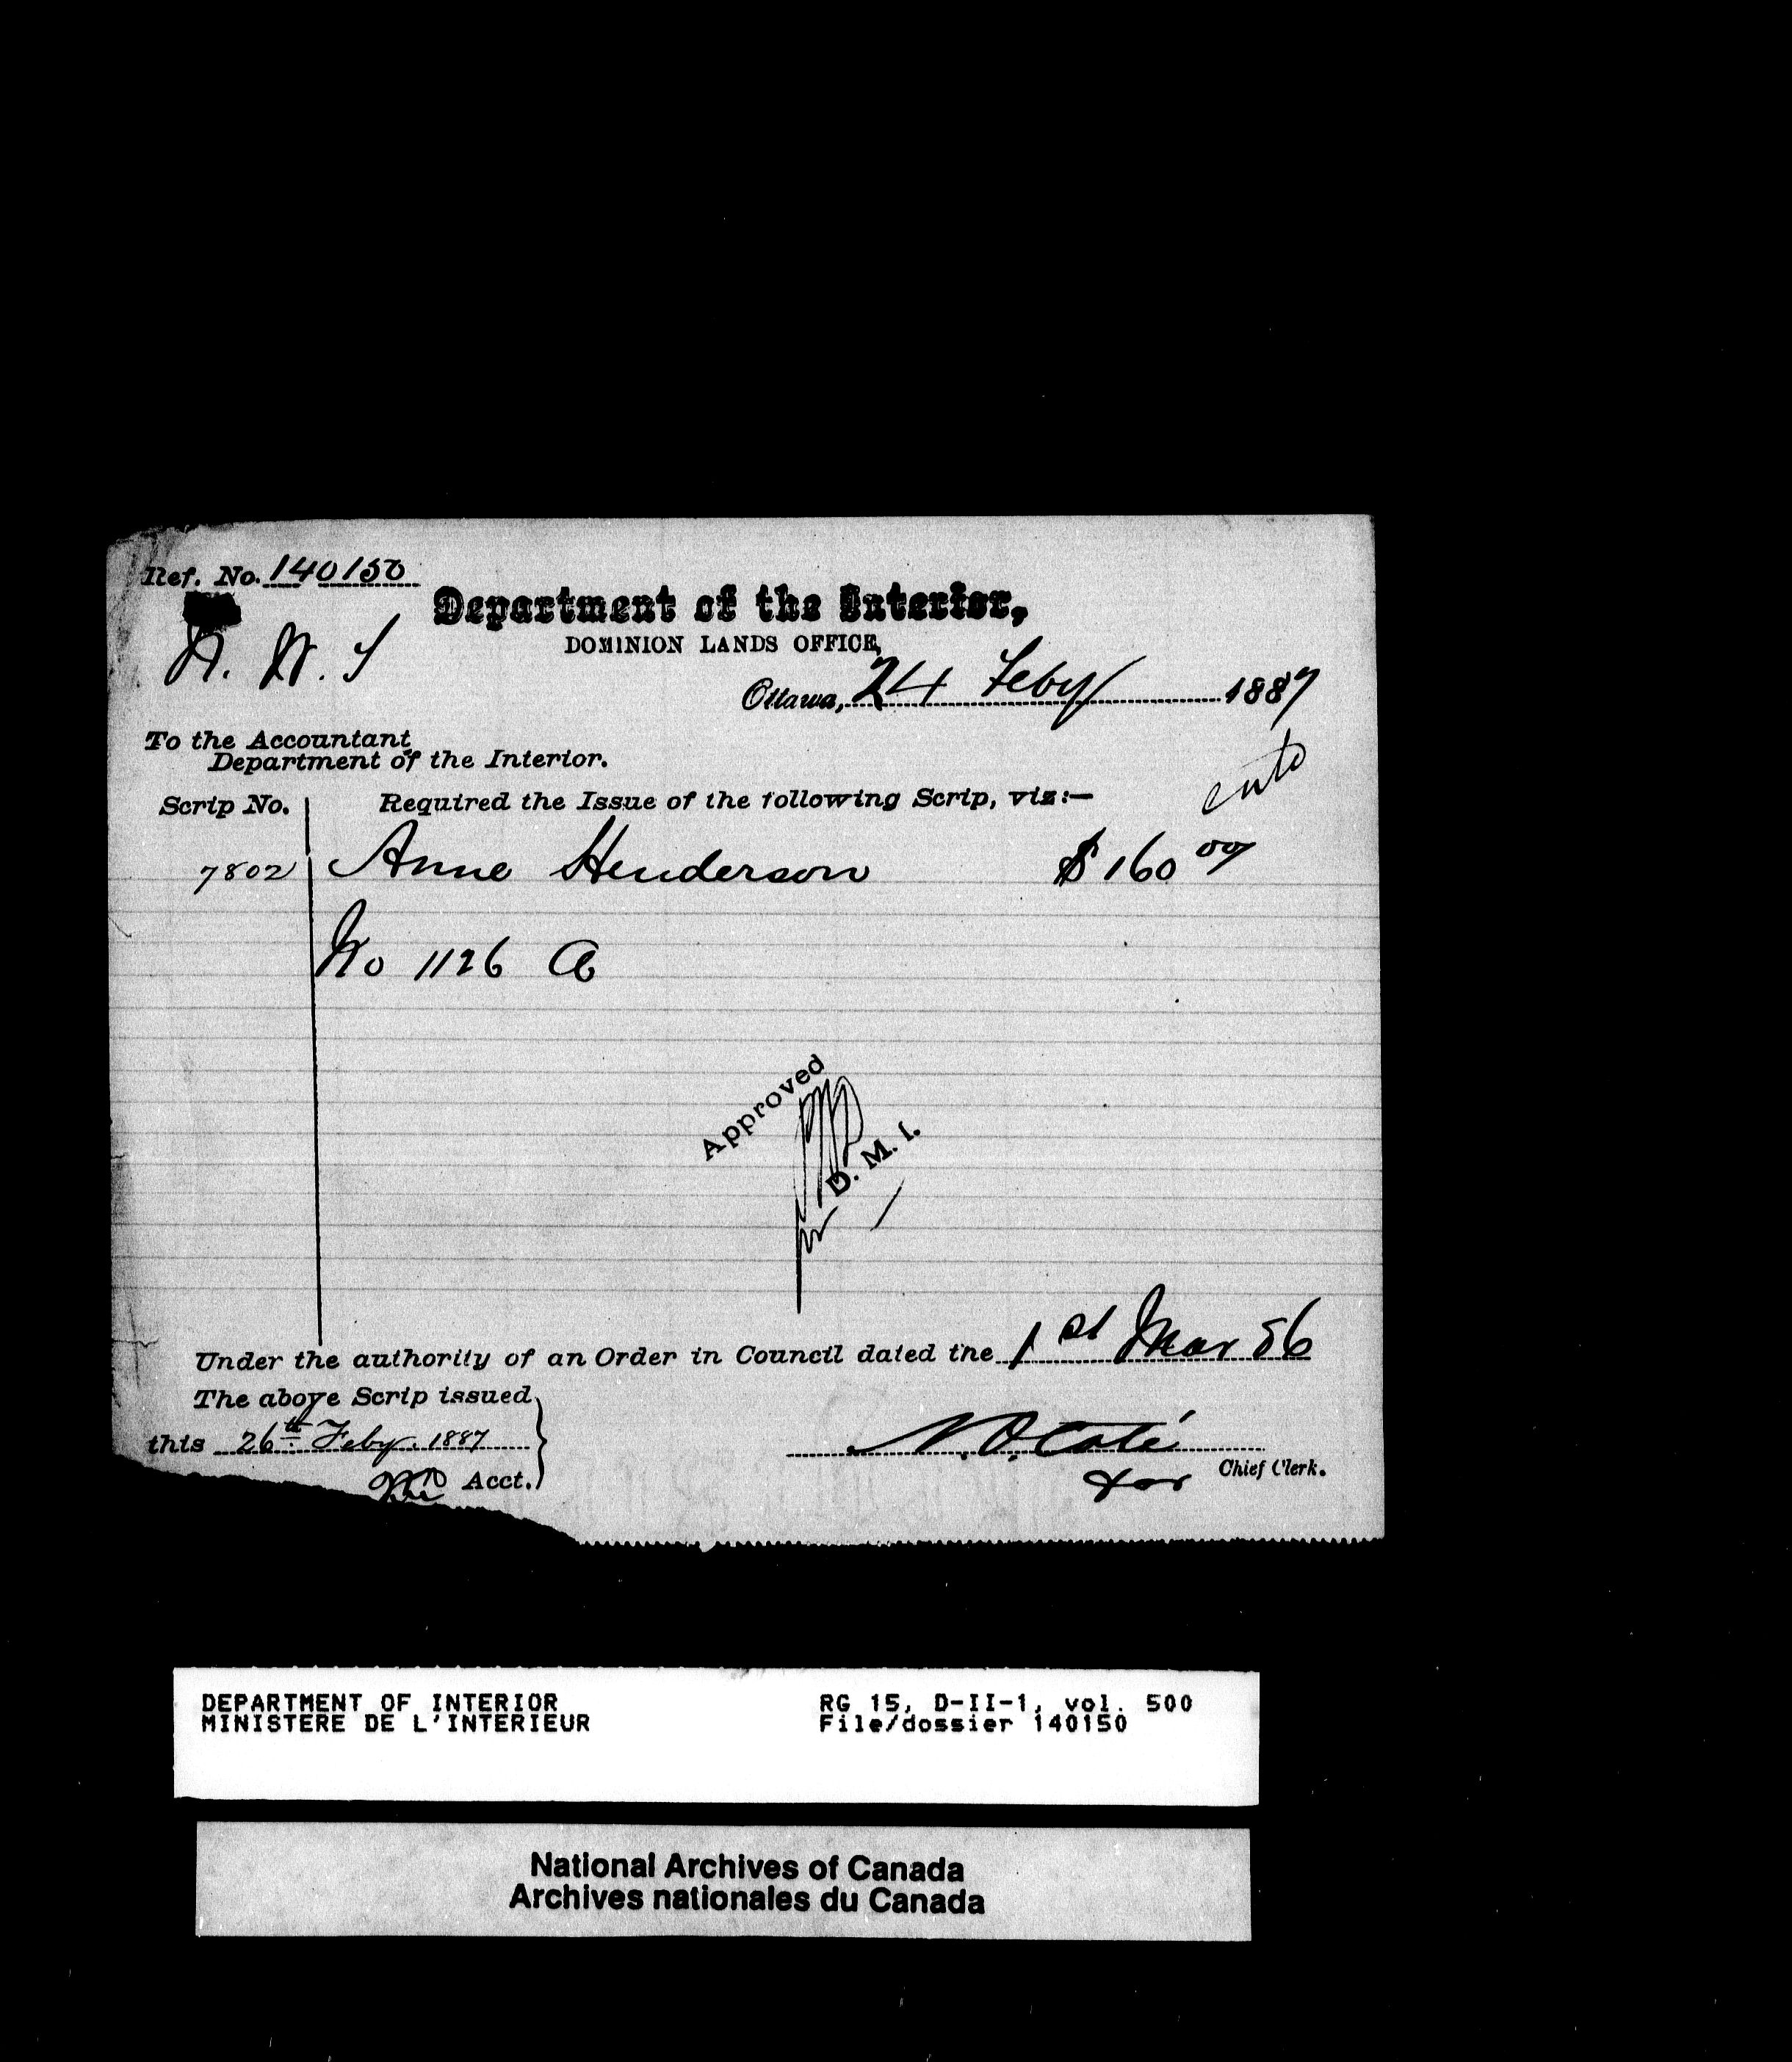 Ref. No. 140150
N. W. T
Department of the Interior,
DOMINION LANDS OFFICE,
Ottawa, 24 Feby 1887
To the Accountant
Department of the Interior.
entd
Scrip No. Required the Issue of the following Scrip, viz:—
7802 Anne Henderson $160 00
No 1126 A
Approved
D. M. I.
for
Under the authority of an Order in Council dated the 1st Mar 86
The above Scrip issued
this 26th Feby. 1887
N.O. Coté
Acct.
for Chief Clerk.
DEPARTMENT OF INTERIOR
MINISTERE DE L'INTERIEUR
RG 15, D-II-1, vol. 500
File/dossier 140150
National Archives of Canada
Archives nationales du Canada